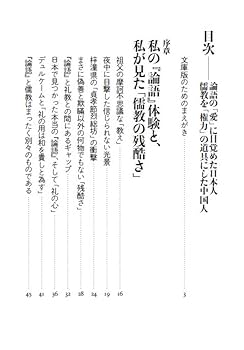 目次――論語の「愛」に目覚めた日本人
儒教を「権力」の道具にした中国人
文庫版のためのまえがき 3
序章
私の『論語』体験と、
私が見た「儒教の残酷さ」
祖父の摩訶不思議な「教え」 16
夜中に目撃した信じられない光景 19
梓潼県の「貞孝節烈総坊」の衝撃 24
まさに偽善と欺瞞以外の何物でもない「残酷さ」 28
『論語』と礼教との間にあるギャップ 32
日本で見つかった本当の『論語』、そして「礼の心」 36
デュルケームと、「礼の用は和を貴しと為す」 41
『論語』と儒教はまったく別々のものである 45